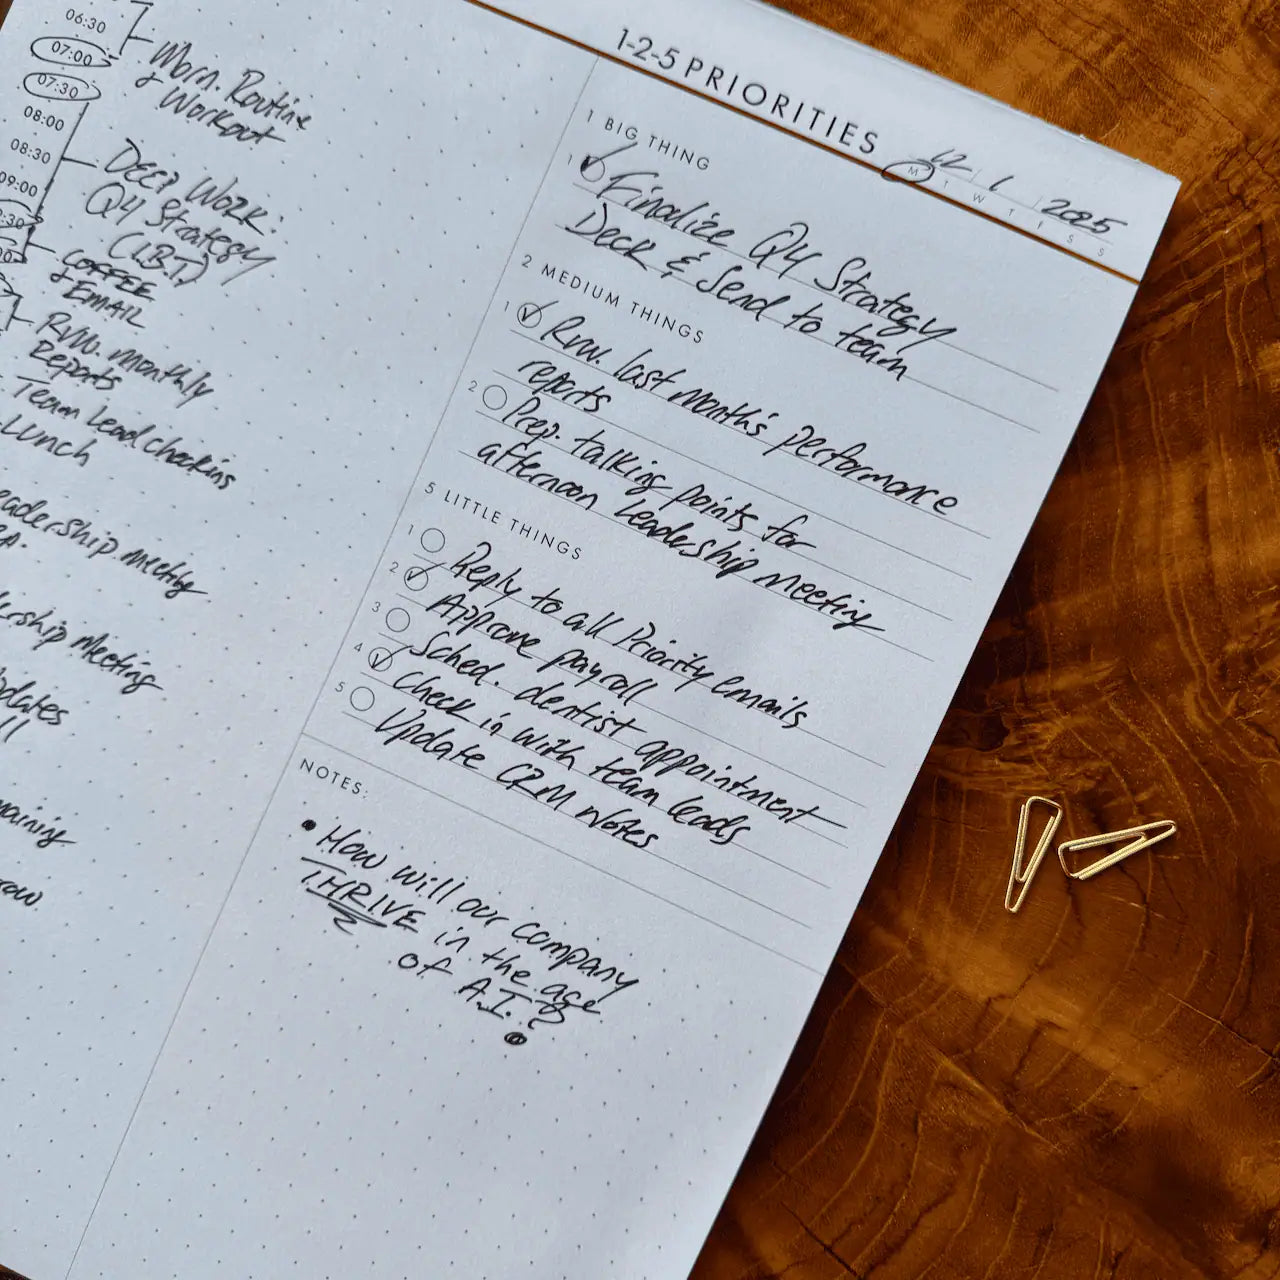 06:30
07:00
07:30
08:00
08:30
09:00
Morn. Routine
& Workout
Deep Work:
Q4 Strategy
(LBT)
COFFEE
& EMAIL
Rvw. monthly
Reports
Team lead checkins
Lunch
eadership meeting
ship Meeting
pdates
ll
maining
row
1-2-5 PRIORITIES
12 / 1 / 2025
M T W T F S S
1 BIG THING
1 Finalize Q4 Strategy
Deck & Send to team
2 MEDIUM THINGS
1 Rvw. last month's performance
reports
2 Prep. talking points for
afternoon leadership meeting
5 LITTLE THINGS
1 Reply to all Priority emails
2 Approve payroll
3 Sched. dentist appointment
4 Check in with team leads
5 Update CRM notes
NOTES:
• How will our company
THRIVE in the age
of A.I.?